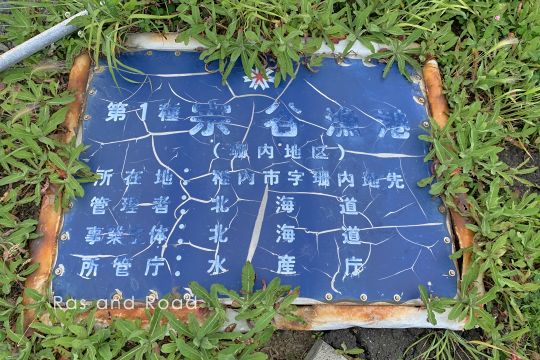 第1種 宗谷漁港
(珊内地区)
所在地：稚内市字珊内地先
管理者：北海道
事業主体：北海道
所管庁：水産庁
Ras and Road